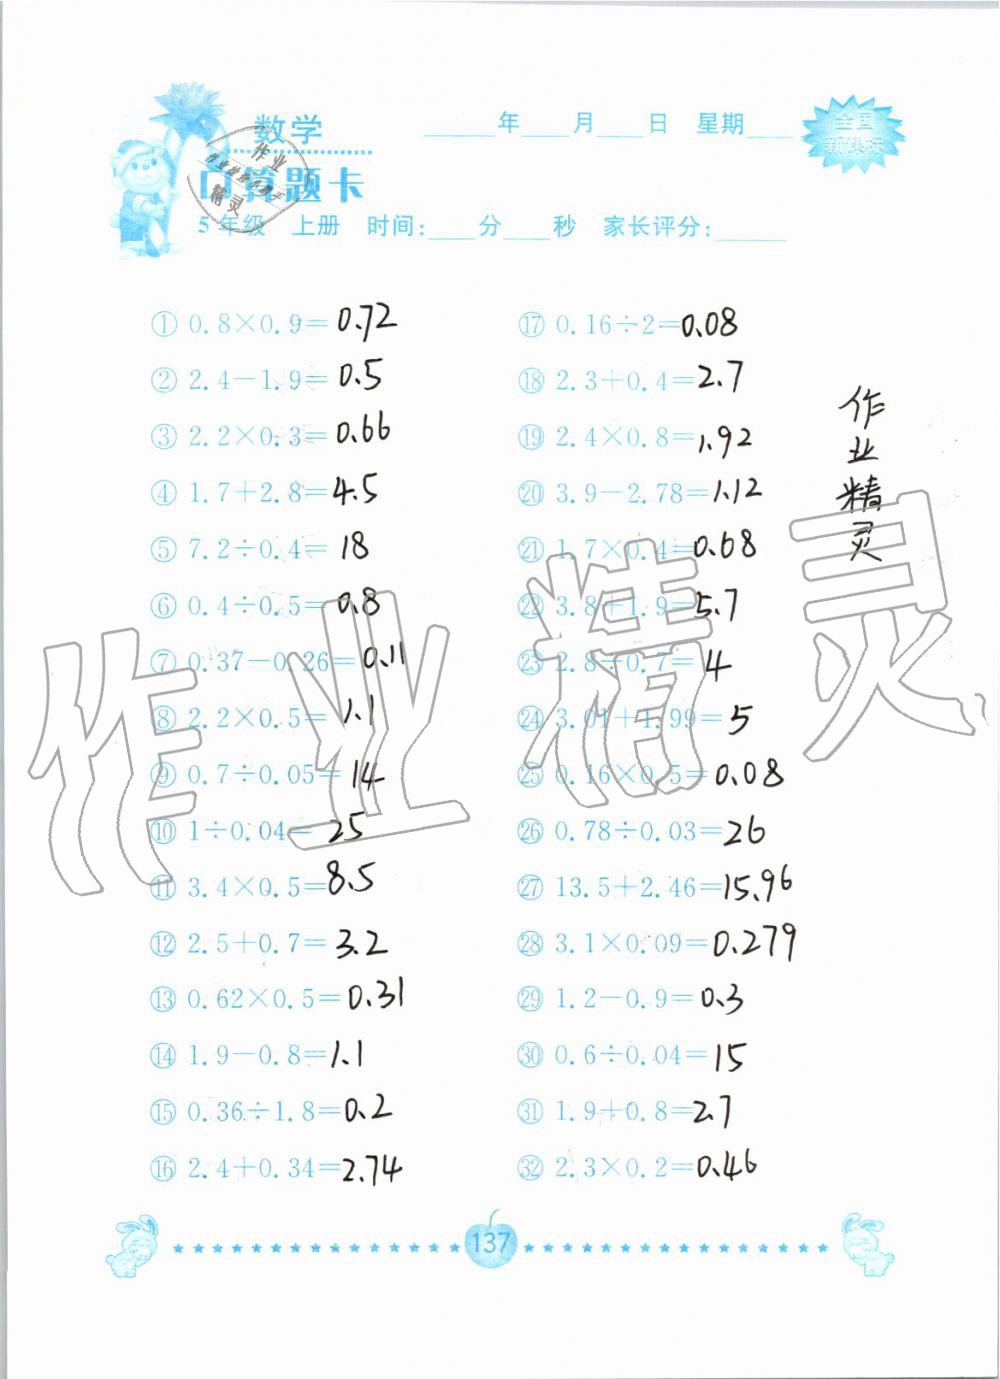 数学
____年____月____日 星期____
全国
新课标
口算题卡
作业
精灵
5年级 上册 时间:____分____秒 家长评分:______
① 0.8×0.9=0.72
② 2.4-1.9=0.5
③ 2.2×0.3=0.66
④ 1.7+2.8=4.5
⑤ 7.2÷0.4=18
⑥ 0.4÷0.5=0.8
⑦ 0.37-0.26=0.11
⑧ 2.2×0.5=1.1
⑨ 0.7÷0.05=14
⑩ 1÷0.04=25
⑪ 3.4×0.5=8.5
⑫ 2.5+0.7=3.2
⑬ 0.62×0.5=0.31
⑭ 1.9-0.8=1.1
⑮ 0.36÷1.8=0.2
⑯ 2.4+0.34=2.74
⑰ 0.16÷2=0.08
⑱ 2.3+0.4=2.7
⑲ 2.4×0.8=1.92
⑳ 3.9-2.78=1.12
㉑ 1.7×0.4=0.68
㉒ 3.8+1.9=5.7
㉓ 2.8÷0.7=4
㉔ 3.01+1.99=5
㉕ 0.16×0.5=0.08
㉖ 0.78÷0.03=26
㉗ 13.5+2.46=15.96
㉘ 3.1×0.09=0.279
㉙ 1.2-0.9=0.3
㉚ 0.6÷0.04=15
㉛ 1.9+0.8=2.7
㉜ 2.3×0.2=0.46
作业精灵
作业精灵
137